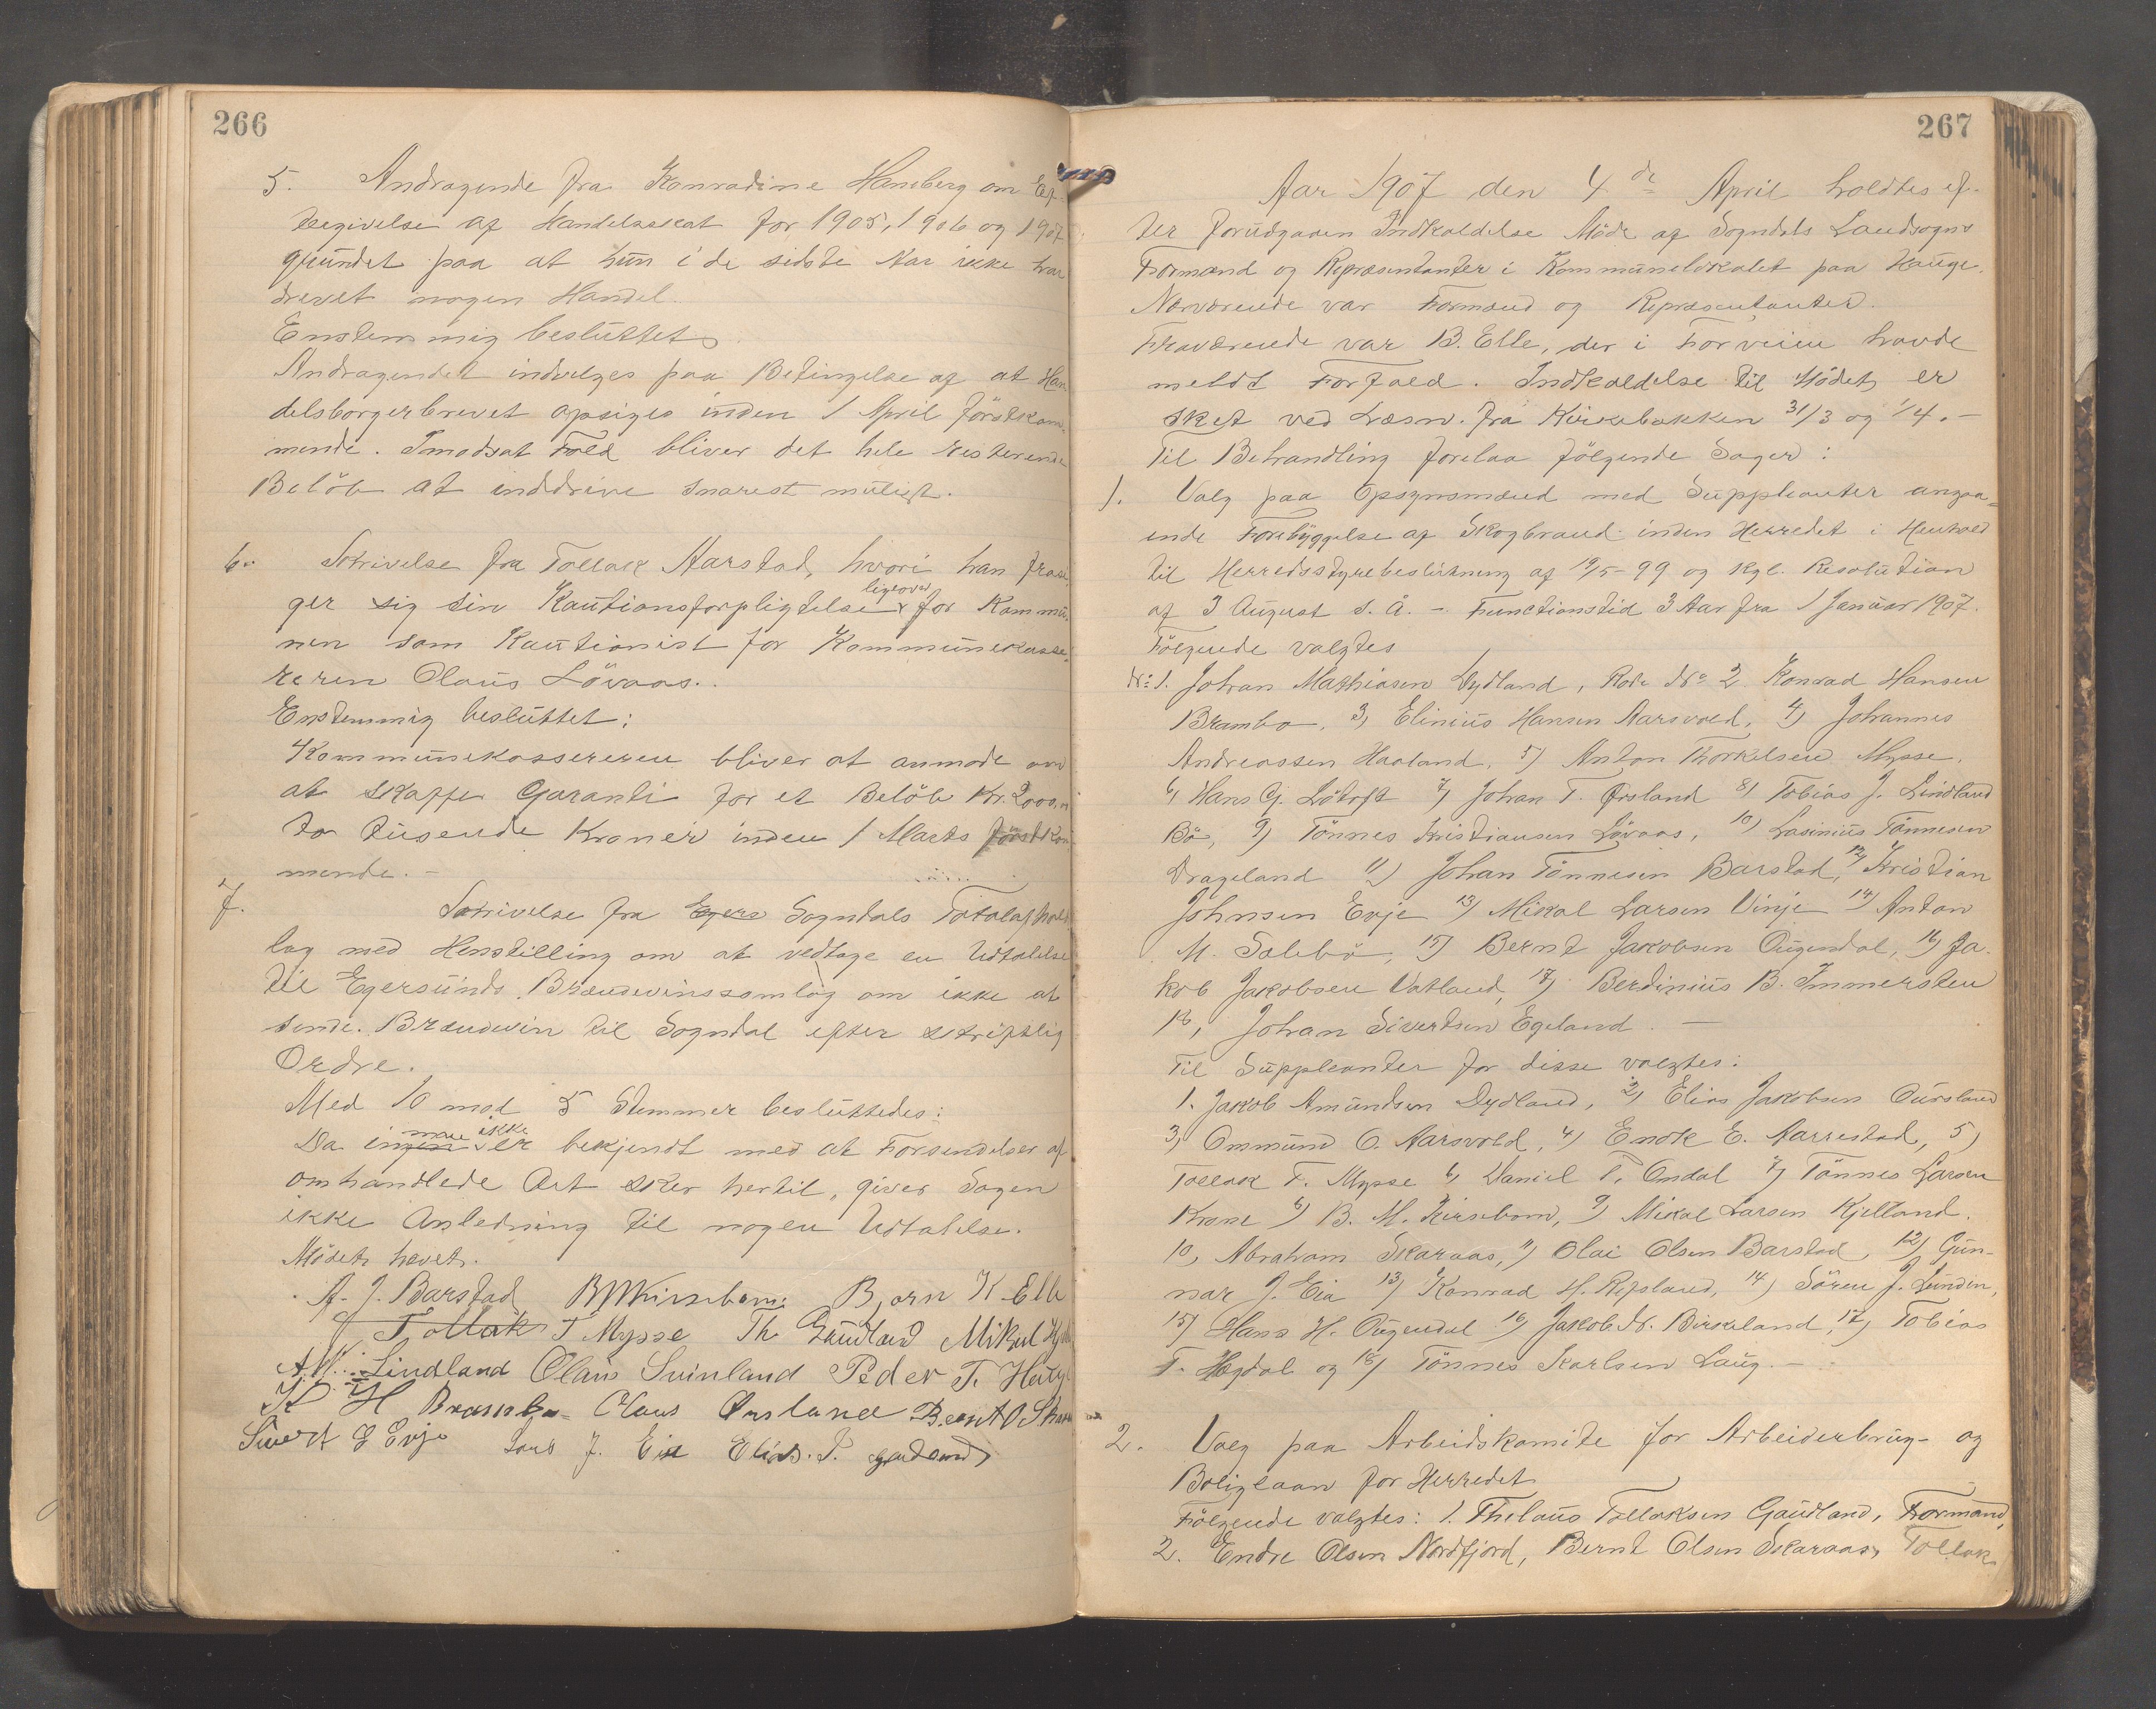 266
5. Andragende fra Konradine Hamberg om Ef-
tergivelse af Handelsskat for 1905, 1906 og 1907
grundet paa at hun i de sidste Aar ikke har
drevet nogen Handel.
Enstemmig besluttet:
Andragendet indvilges paa Betingelse af at Han
delsborgerbrevet opsiges inden 1 April förstkom-
mende. I modsat Fald bliver det hele resterende
Belöb at inddrive snarest muligt.
6. Skrivelse fra Tollak Aarstad, hvori han frasi
ger sig sin Kautionsforpligtelse ligeover for Kommu
nen som Kautionist for Kommunekasse
reren Olaus Lövaas.
Enstemmig besluttet:
Kommunekassereren bliver at anmode om
at skaffe Garanti for et Belöb Kr. 2000,
to tusende Kroner inden 1 Marts förstkom
mende. -
7. Skrivelse fra Egers Sogndals Totalafholds
lag med Henstilling om at vedtage en Udtalelse
til Egersunds Brændevinssamlag om ikke at
sende Brændevin til Sogndal efter skriftlig
Ordre.
Med 10 mod 5 Stemmer besluttedes:
Da ingen man ikke er bekjendt med at Forsendelser af
omhandlede Art sker hertil, giver Sagen
ikke Anledning til nogen Udtalelse.
Mödet hævet.
A. J. Barstad B M Kirsebom Bjorn K Elle
Tollak T Mysse Th. Gaudland Mikal
A. M. Lindland Olaus Svinland Peder T.
K H Brambo Claus Ørsland Bernt O
Sivert E Evje Lars J. Eia Elias. P.
267
Aar 1907 den 4de April holdtes ef-
ter forudgaaen Indkaldelse Möde af Sogndals Landsogns
Formænd og Repræsentanter i Kommunelokalet paa Hauge.
Nærværende var Formænd og Repræsentanter.
Fraværende var B. Elle, der i Forveien havde
meldt Forfald. Indkaldelse til Mödet er
sket ved Læsn. fra Kirkebakken 31/3 og 1/4. -
Til Behandling forelaa fölgende Sager:
1. Valg paa Opsynsmænd med Suppleanter angaa-
ende Forebyggelse af Skogbrand inden Herredet i Henhold
til Herredsstyrebeslutning af 19/5-99 og Kgl. Resolution
af 3 August s. å. - Functionstid 3 Aar fra 1 Januar 1907.
Fölgende valgtes
No 1. Johan Mathiasen Dydland, Rode No 2 Konrad Hansen
Brambo, 3, Elinius Hansen Aarsvold, 4) Johannes
Andreassen Haaland, 5) Anton Thorkelsen Mysse,
6, Hans G. Lötoft 7) Johan T. Ørsland 8) Tobias J. Lindland
Bö, 9) Tönnes Kristiansen Lövaas, 10) Lasinius Tönnesen
Drageland 11) Johan Tönnesen Barstad, 12) Kristian
Johnsen Evje 13) Mikal Larsen Vinje 14) Anton
M. Solebö, 15) Bernt Jakobsen Ougendal, 16) Ja-
kob Jakobsen Vatland, 17) Berdinius B. Immersten
18, Johan Sivertsen Egeland. -
Til Suppleanter for disse valgtes:
1. Jakob Amundsen Dydland, 2, Elias Jakobsen Oursland
3, Ommund O. Aarsvold, 4) Enok E. Aarrestad, 5)
Tollak F. Mysse 6, Daniel P. Ondal 7) Tönnes Larsen
Krone 8) B. M. Kirsebom, 9) Mikal Larsen Kjelland.
10, Abraham Skaraas, 11) Olai Olsen Barstad, 12) Gun-
nar J. Eia 13) Konrad H. Repsland, 14) Sören J. Lunden,
15) Hans H. Ougendal 16) Jakob N. Birkeland, 17) Tobias
T. Hægdal og 18) Tönnes Karlsen Laug. -
2. Valg paa Arbeidskomite for Arbeiderbrug- og
Boliglaan for Herredet
Fölgende valgtes: 1. Thelaus Tollaksen Gaudland, Formand,
2. Endre Olsen Nordfjord, Bernt Olsen Skaraas, Tollak